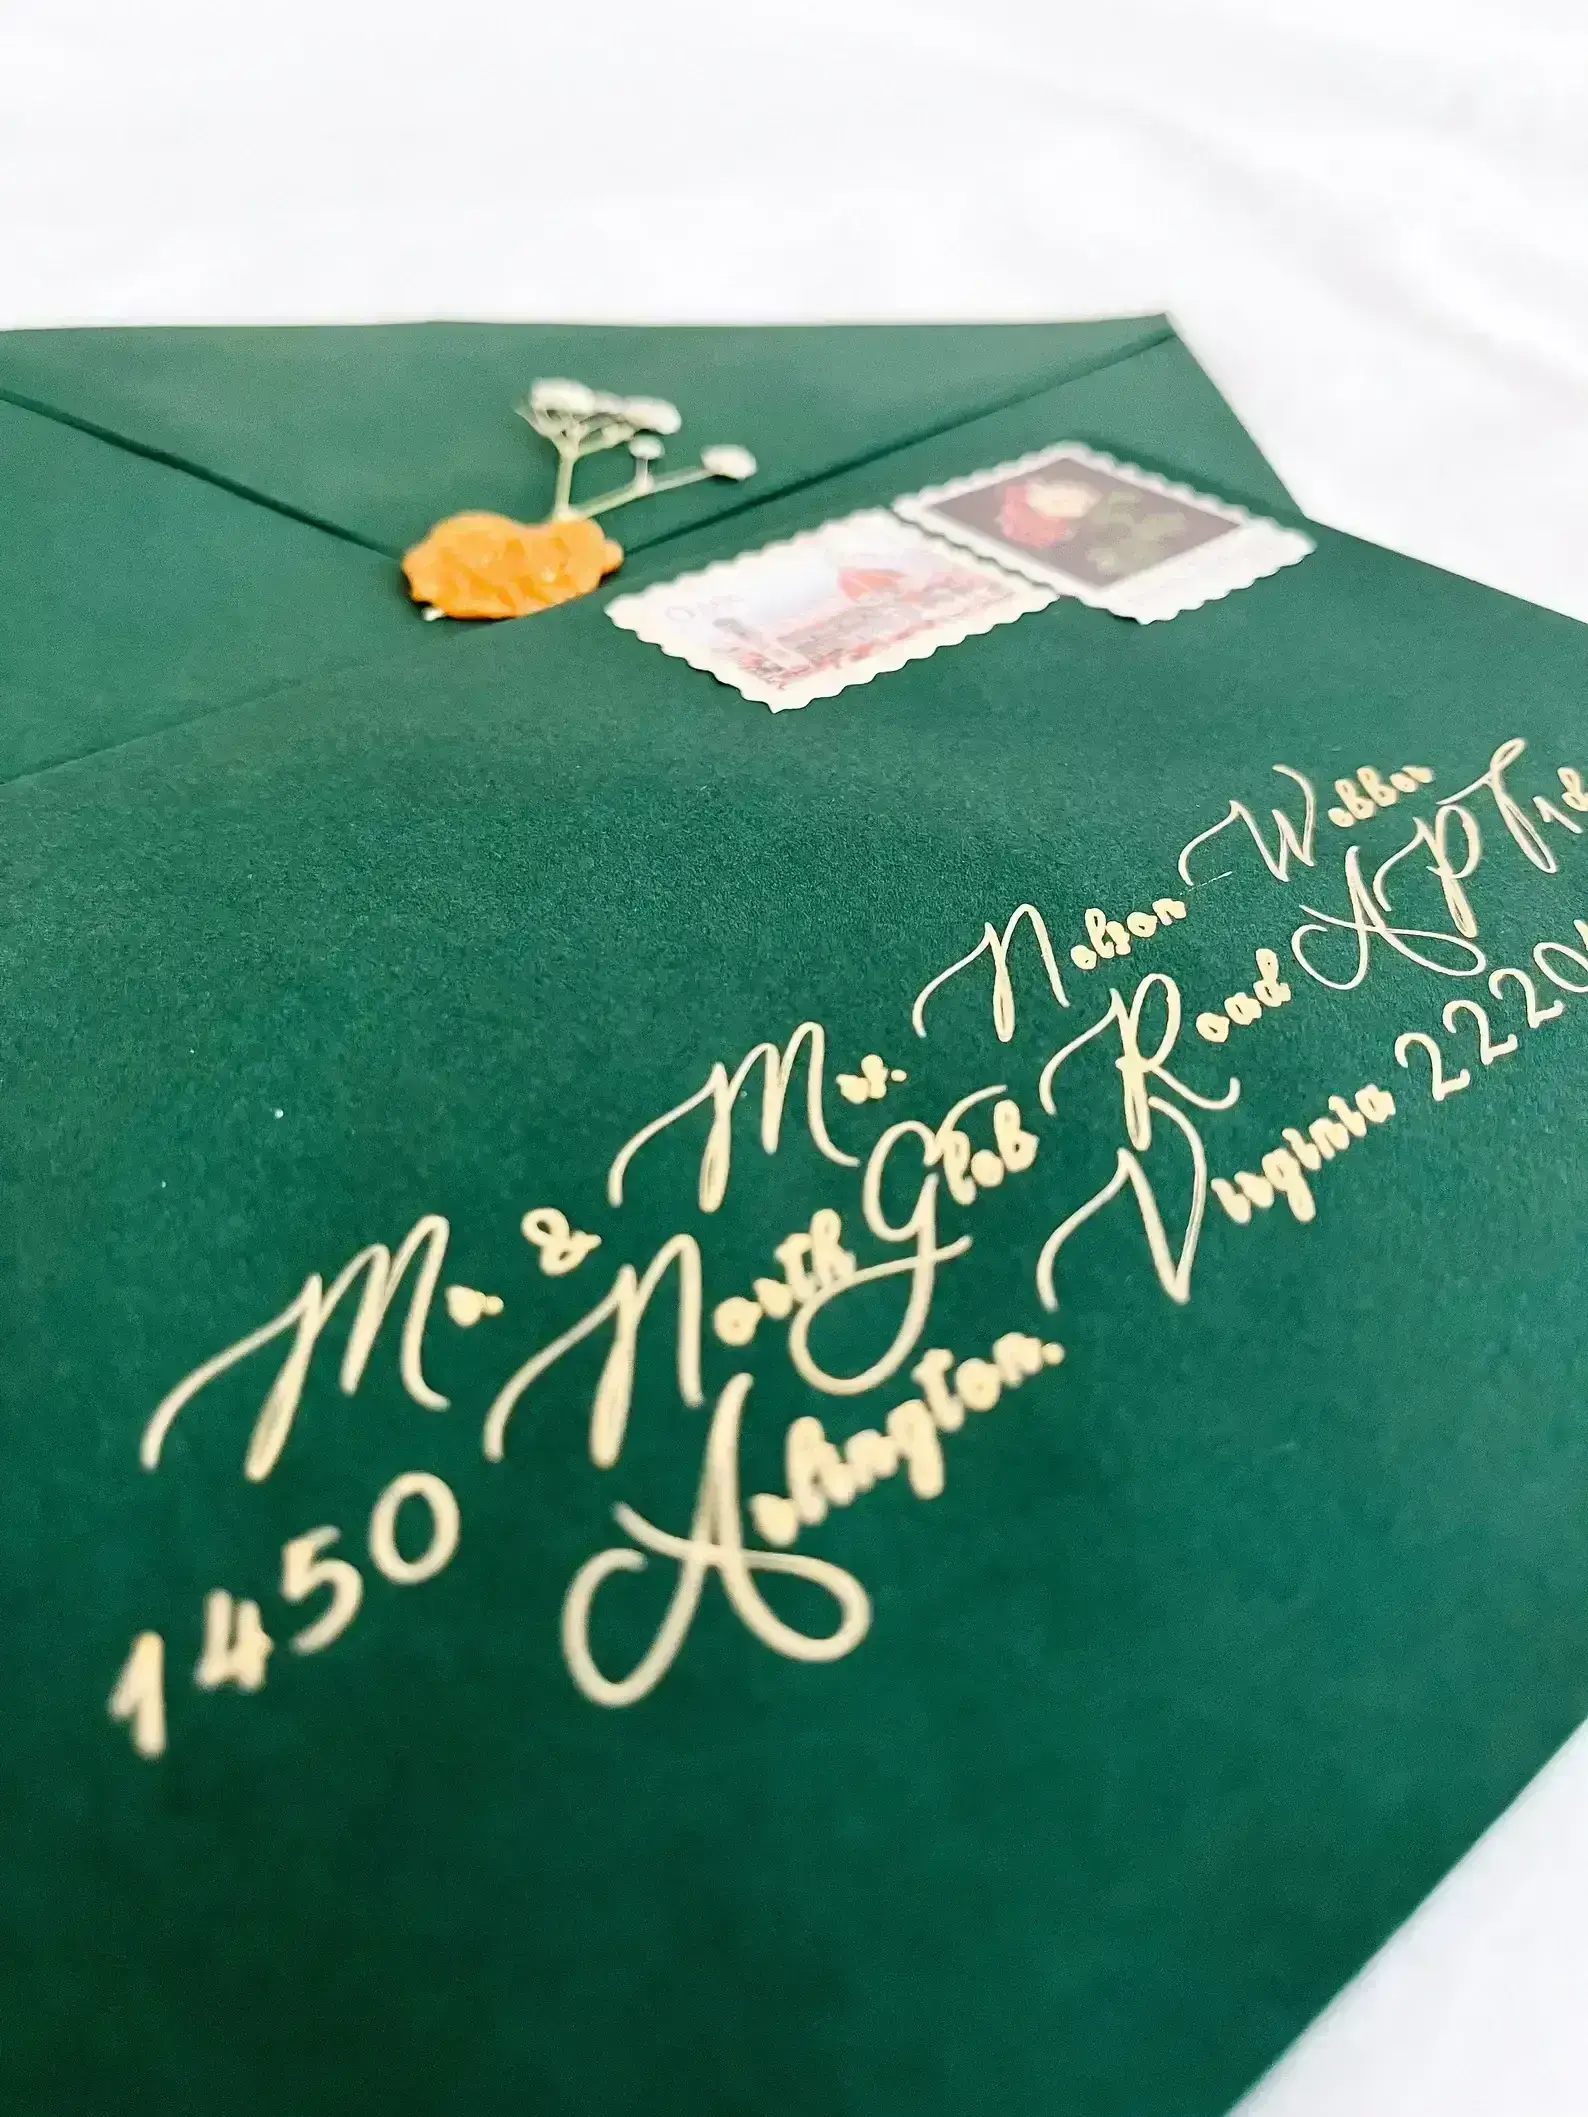 Mr. & Mrs. Nelson Webber
1450 North Gleb Road APT
Arlington. Virginia 2220